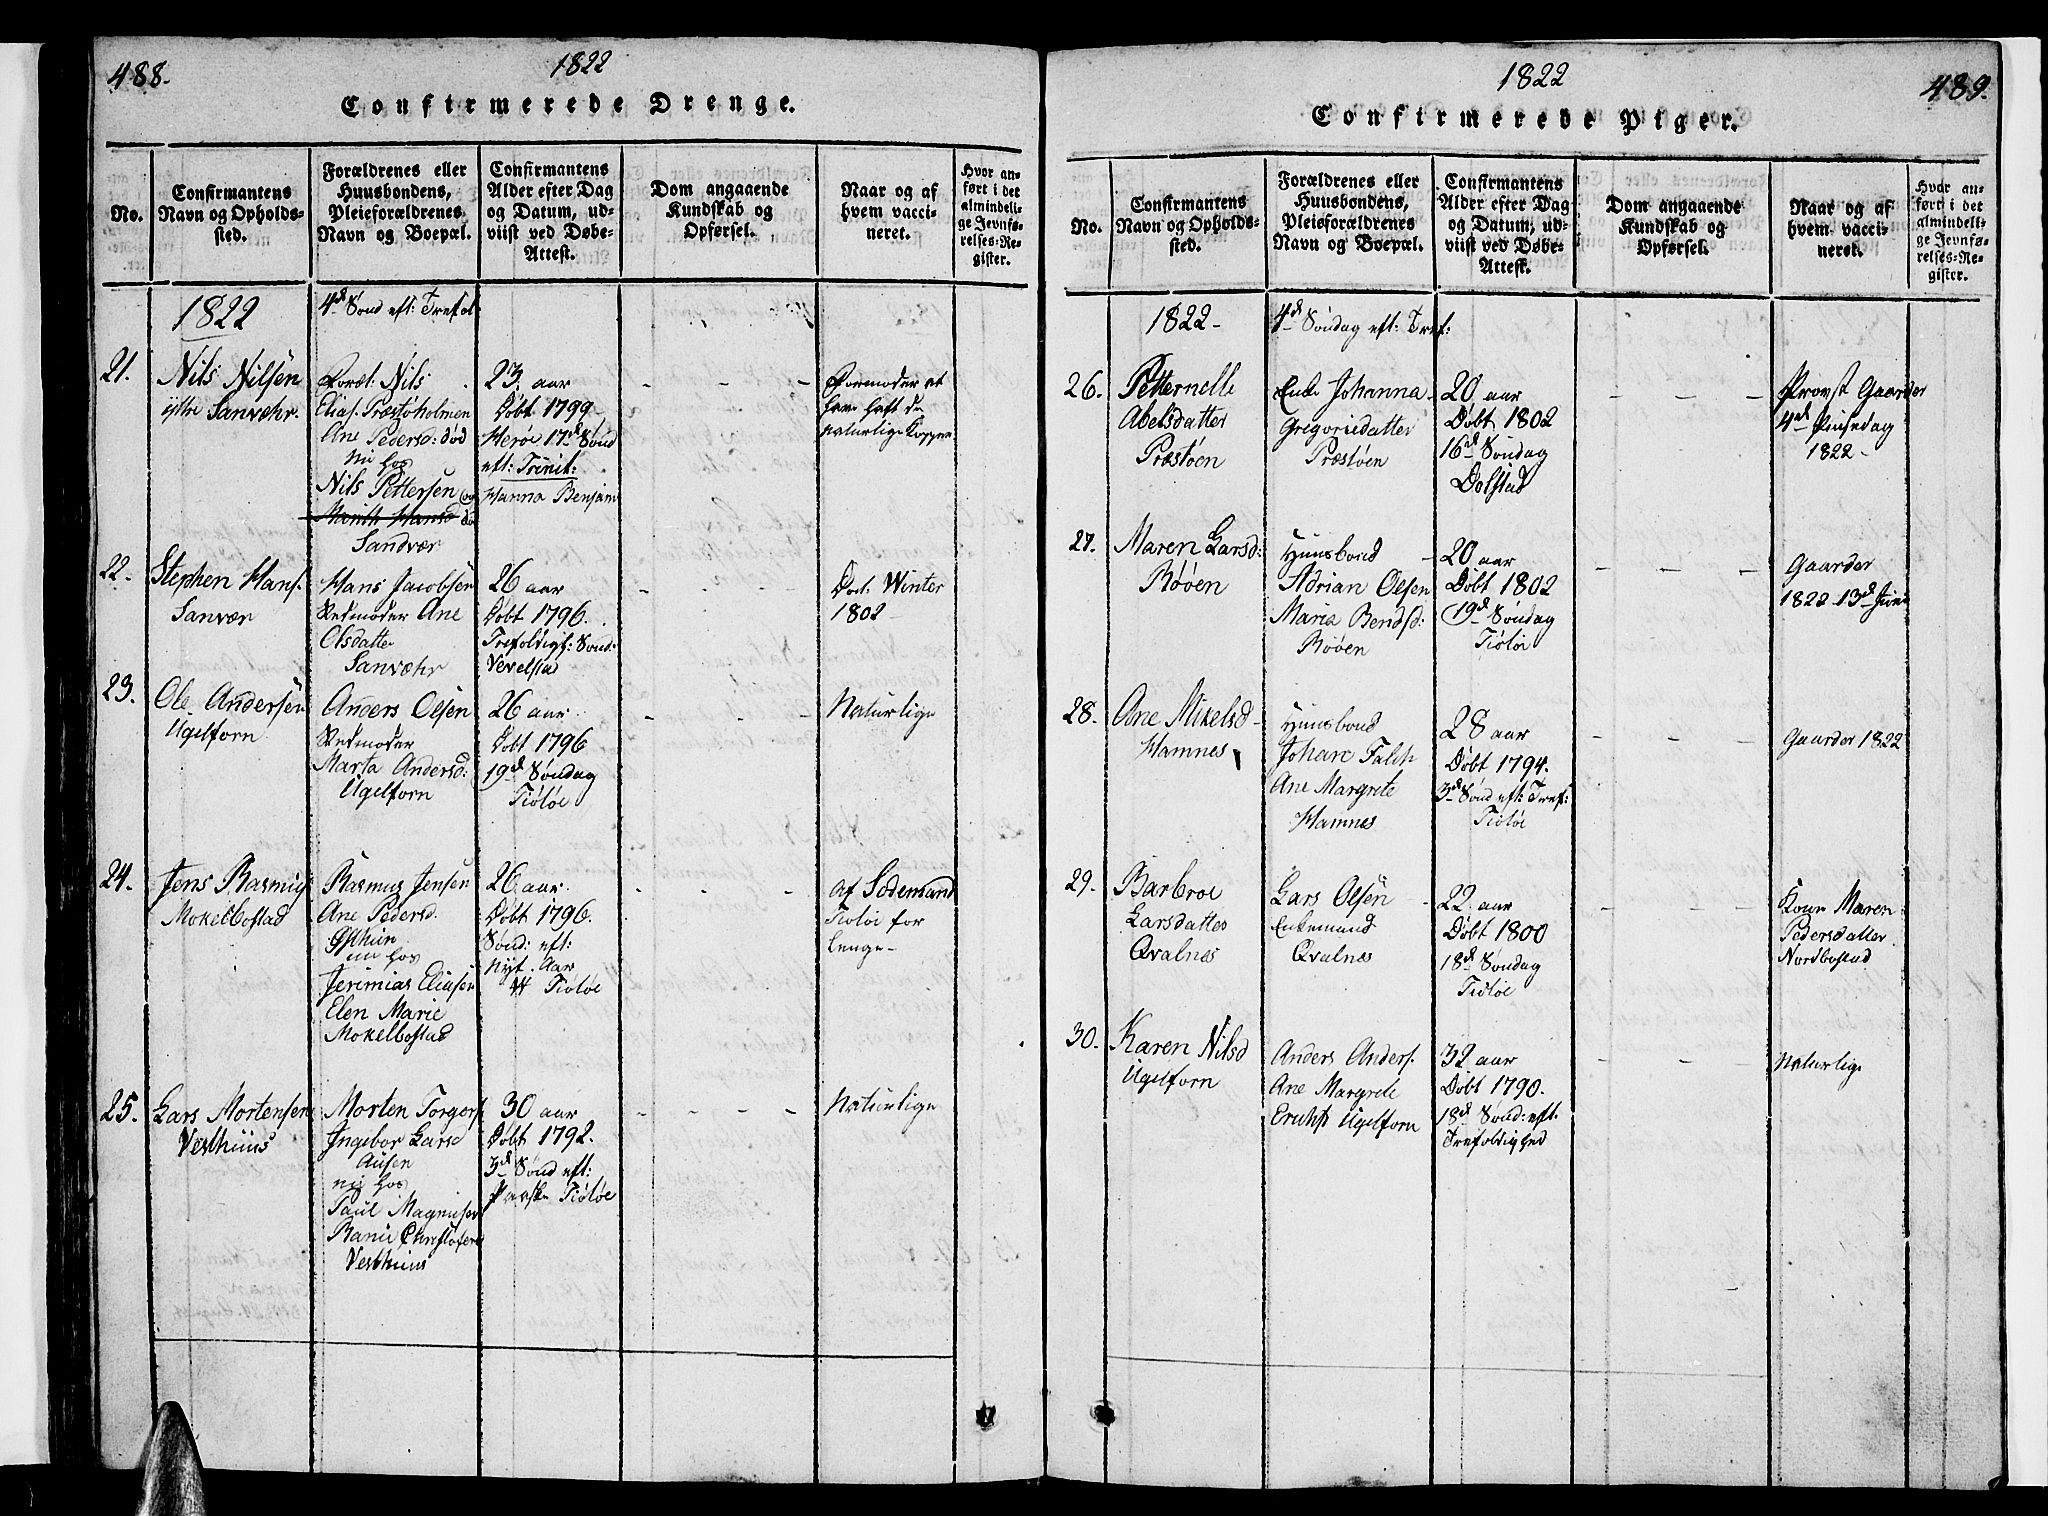 488.
1822
Confirmerede Drenge.
No.
Confirmantens
Navn og Opholds-
sted.
Forældrenes eller
Huusbondens,
Pleieforældrenes
Navn og Boepæl.
Confirmantens
Alder efter Dag
og Datum, ud-
viist ved Døbe-
Attest.
Dom angaaende
Kundskab og
Opførsel.
Naar og af
hvem vacci-
neret.
Hvor an-
ført i det
almindeli-
ge Jevnfø-
relses-Re-
gister.
1822
4d Sønd eft: Trefol:
21.
Nils Nilsen
ÿttre Sanvæhr.
Foræl: Nils
Elias. Præstøholmen
Ane Pedersd: død
nu hos
Nils Pettersen og
Marith Hansd
Sandvær
23. aar
Døbt 1799
Herøe 17d Sønd
eft: Trinit:
Hanna Benjam
- - - -
Formoder at
have haft de
naturlige Kopper
22.
Stephen Hans.
Sanvær
Hans Jacobsen
Stedmoder Ane
Olsdatte
Sanvæhr
26 aar
Døbt 1796.
Trefoldigh: Sønd:
Vevelsta
- - -
Winter
1802
23.
Ole Andersen
Ugelforn
Anders Olsen
Stedmoder
Marta Andersd:
Ugelforn
26 aar
Døbt 1796
19d Søndag
Tiøtøe
- - -
Naturlige
24.
Jens Rasmus
Mokelbostad
Rasmus Jensen
Ane Pedersd.
nu hos
Jerimias Eliasen
Elen Marie
Mokelbostad
26 aar
Døbt 1796.
Sønd: eft:
Nyt. Aar
Tiøtøe
- - -
Af Sodemand
Tiøtøe for
lenge-
25.
Lars Mortensen
Vesthuus
Morten Torgers
Ingebor Larsd
Ausen
nu hos
Paul Magnusen
Ranu Christofers
Vesthuus
30 aar
Døbt 1792.
3d Sønd eft:
Paaske Tiøtøe
- - - -
Naturlige
1822
489.
Confirmerede Piger.
No.
Confirmantens
Navn og Opholds-
sted.
Forældrenes eller
Huusbondens,
Pleieforældrenes
Navn og Boepæl.
Confirmantens
Alder efter Dag
og Datum, ud-
viist ved Døbe-
Attest.
Dom angaaende
Kundskab og
Opførsel.
Naar og af
hvem vacci-
neret.
Hvor an-
ført i det
almindeli-
ge Jevnfø-
relses-Re-
gister.
1822-
4d Søndag eft: Tref:
26.
Petternelle
Abelsdatter
Præstøen
Enke Johanna
Gregoriedatter
Præstøen
20 aar
Døbt 1802
16d Søndag
Dolstad
- - -
Provst Gaarder
4d Pinsedag
1822-
27.
Maren Larsd:
Røøen
Huusbond
Adrian Olsen
Maria Bendsd:
Røøen
20 aar
Døbt 1802
19d Søndag
Tiøtøe
- - -
Gaarder
1822 13d Juni
28.
Ane Mikelsd
Hamnes
Huusbond
Johan Falch
Ane Margrete
Hamnes
28 aar
Døbt 1794.
3d Sønd eft: Tref:
Tiøtøe
- - -
Gaarder 1822
29.
Barbroe
Larsdatter
Qvalnes
Lars Olsen
Enkemand
Qvalnes
22 aar
Døbt 1800
18d Søndag
Tiøtøe
- - -
Kone Maren
Pedersdatter
Nordbostad
30.
Karen Nilsd
Ugelforn
Anders Anders.
Ane Margrete
Ugelforn
32 aar
Døbt 1790.
18d Sønd: eft:
Trefoldighed
- - -
Naturlige